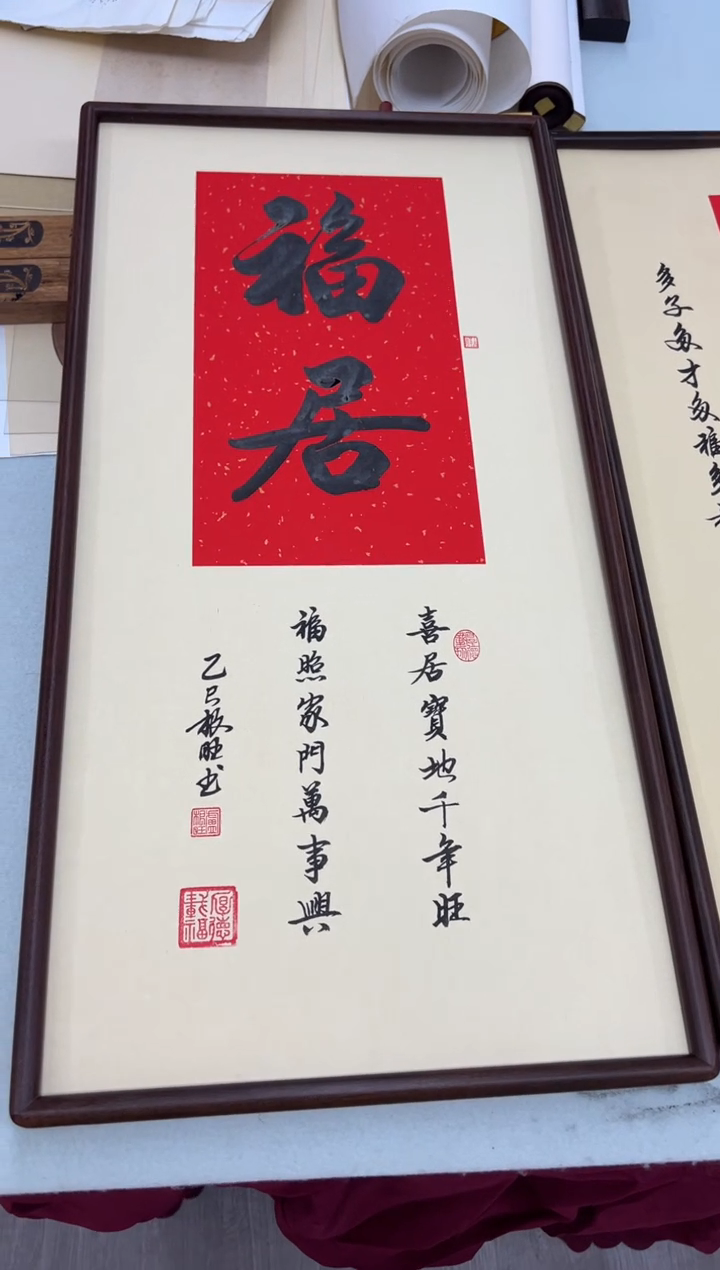 福居
喜居寶地千年旺
福照家門萬事興
乙巳根旺书
厚德載福
多子多才多福